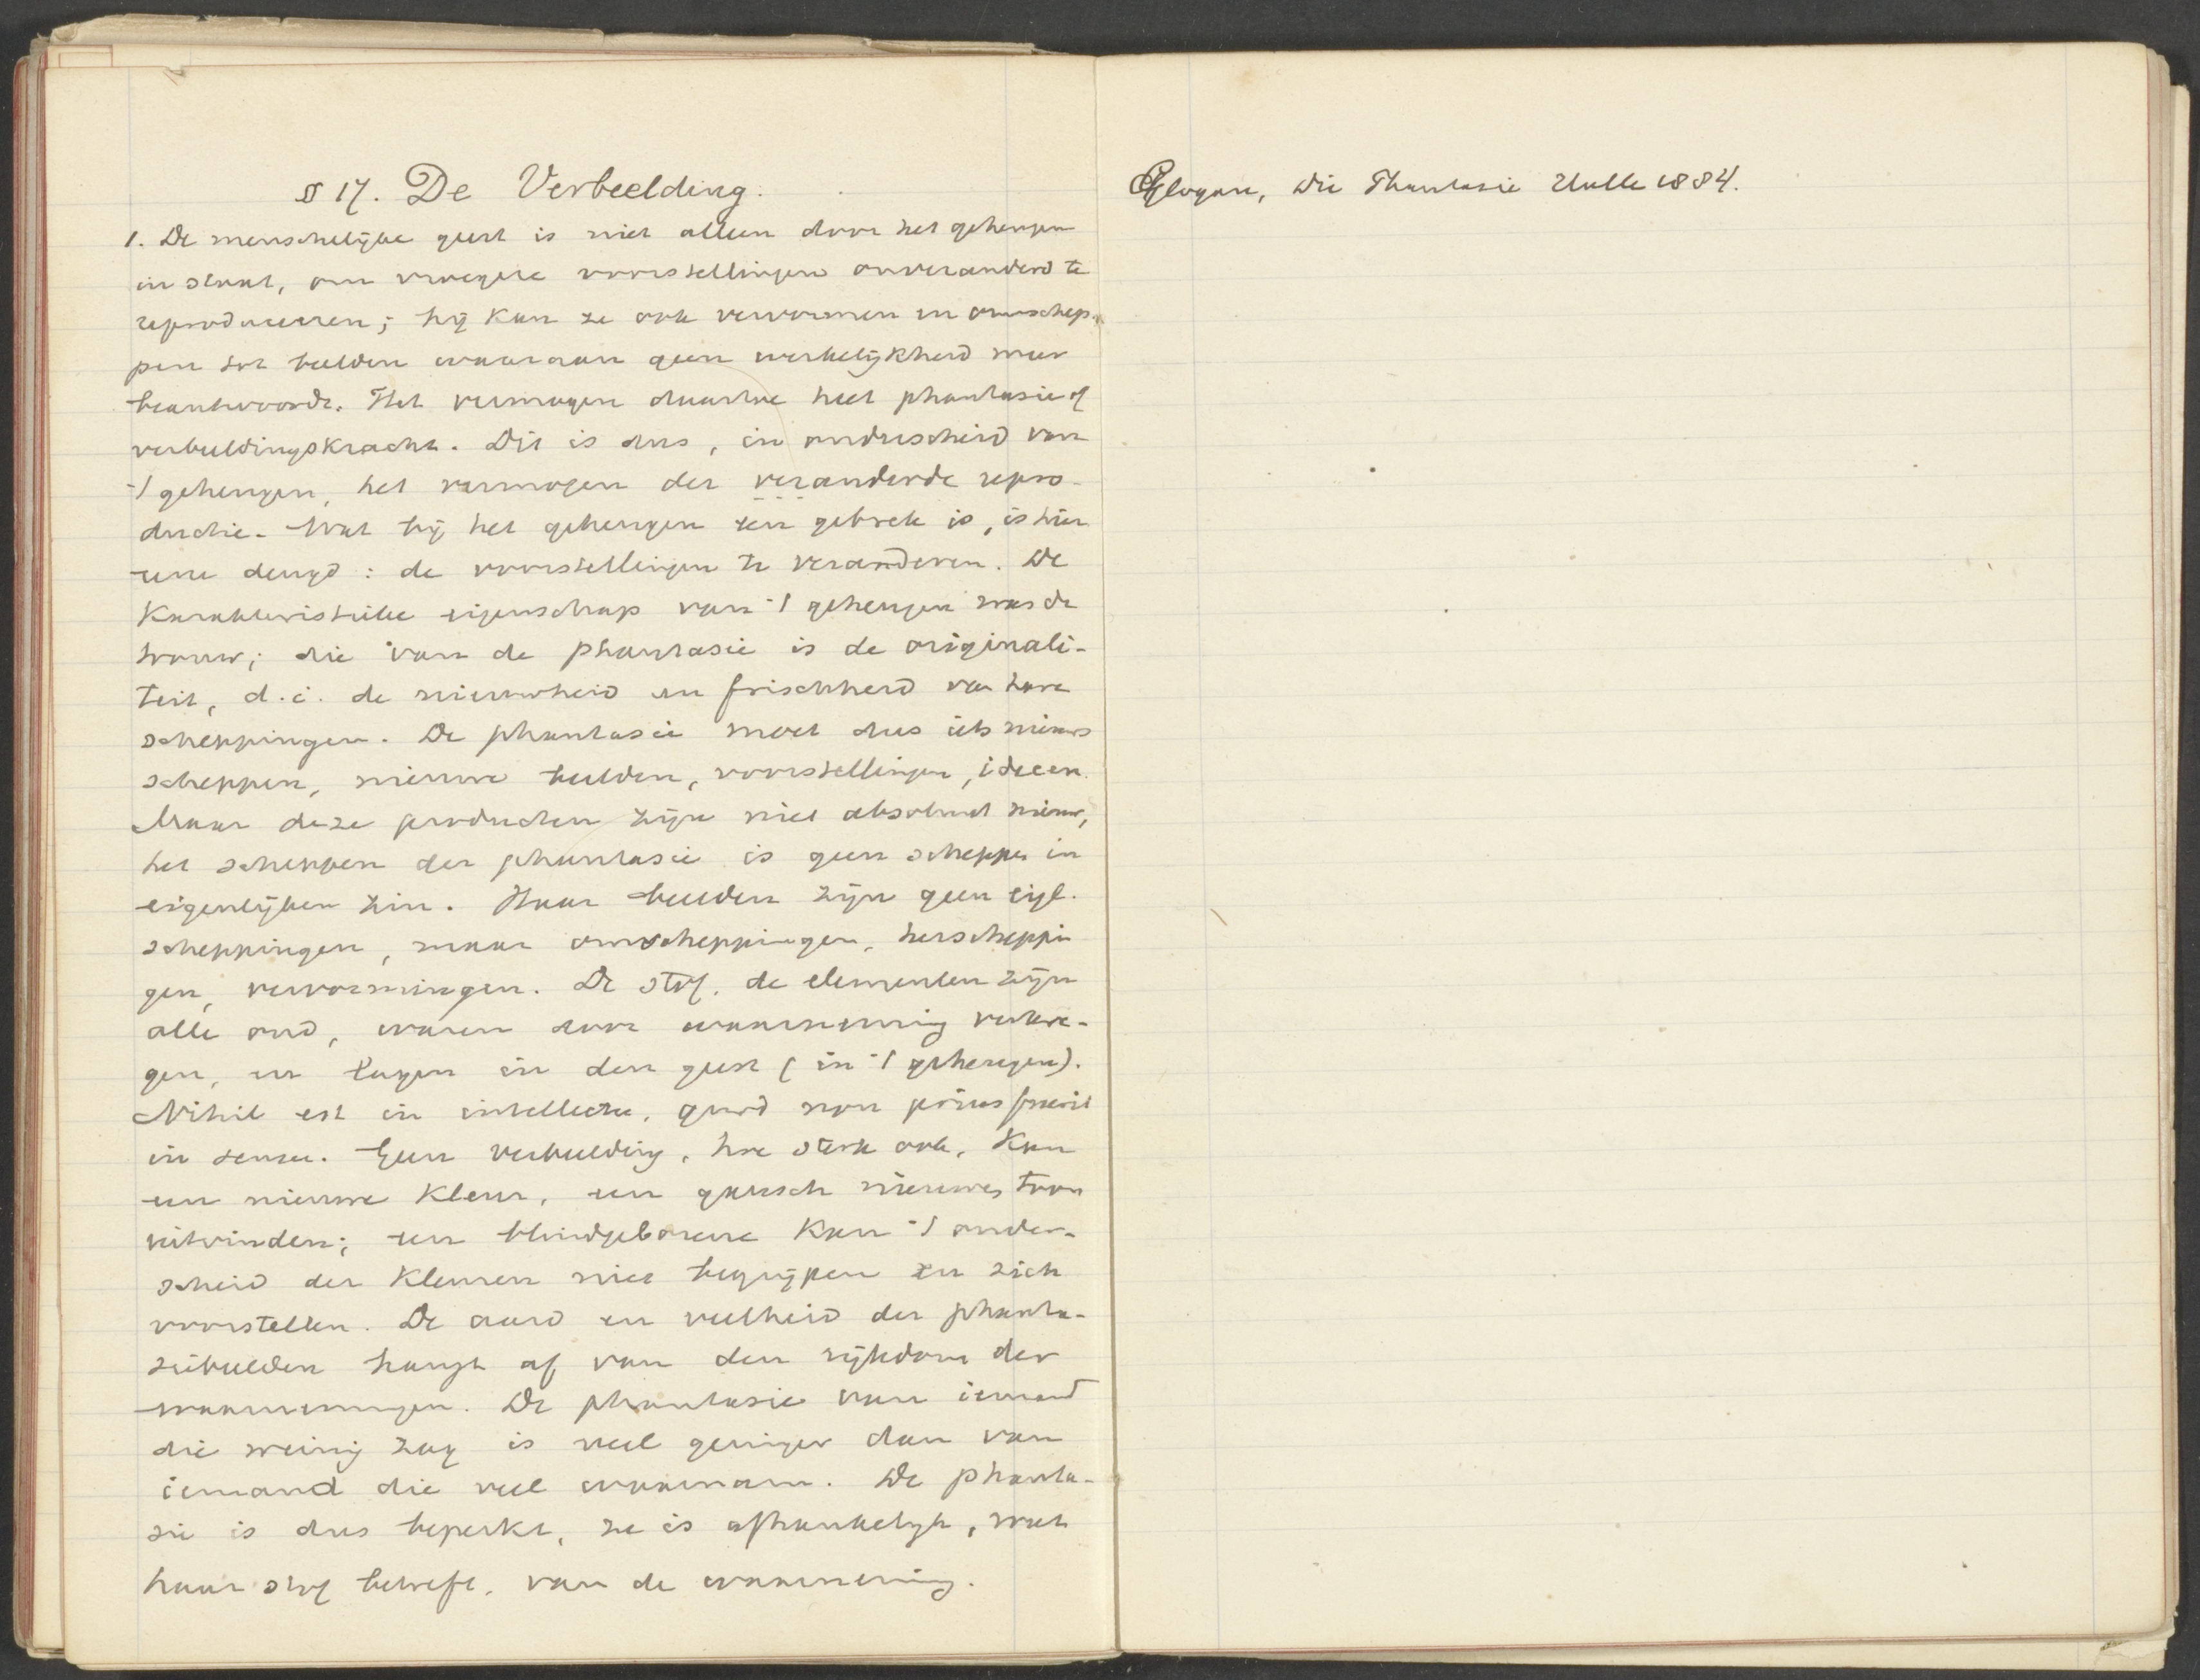 § 17. De Verbeelding.
1. De menschelijke geest is niet alleen door het geheugen
in staat, om vroegere voorstellingen onveranderd te
reproduceeren; hij kan ze ook vervormen en omschep-
pen tot beelden waaraan geen werkelijkheid meer
beantwoordt. Het vermogen daartoe heet phantasie of
verbeeldingskracht. Dit is dus, in onderscheid van
't geheugen, het vermogen der veranderde repro-
ductie. Wat bij het geheugen een gebrek is, is hier
eene deugd: de voorstellingen te veranderen. De
karakteristieke eigenschap van 't geheugen was de
trouw; die van de phantasie is de originali-
teit, d.i. de nieuwheid en frischheid van hare
scheppingen. De phantasie moet dus iets nieuws
scheppen, nieuwe beelden, voorstellingen, ideeen.
Maar deze producten zijn niet absoluut nieuw,
het scheppen der phantasie is geen scheppen in
eigenlijken zin. Haar beelden zijn geen eigl.
scheppingen, maar omscheppingen, herscheppin
gen, vervormingen. De stof, de elementen zijn
alle oud, waren door waarneming verkre-
gen, en lagen in den geest (in 't geheugen).
Nihil est in intellectu, quod non prius fuerit
in sensu. Geen verbeelding, hoe sterk ook, kan
een nieuwe kleur, een gansch nieuwen toon
uitvinden; een blindgeborene kan 't onder-
scheid der kleuren niet begrijpen en zich
voorstellen. De aard en veelheid der phanta-
siebeelden hangt af van den rijkdom der
waarnemingen. De phantasie van iemand
die weinig zag is veel geringer dan van
iemand die veel waarnam. De phanta-
sie is dus beperkt, ze is afhankelijk, wat
haar stof betreft, van de waarneming.
Glogau, Die Phantasie Halle 1884.